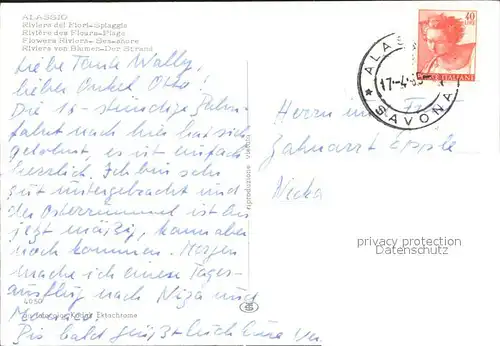 ALASSIO
Riviera dei Fiori - Spiaggia
Rivière des Fleurs - Plage
Flowers Riviera - Sea-shore
Riviera von Blumen - Der Strand
Liebe Tante Wally,
lieber Onkel Otto!
Die 16-stündige Zahn-
fahrt nach hier hat sich
gelohnt, es ist einfach
herrlich. Ich bin sehr
gut untergebracht und
der Osterrummel ist bis
jetzt mäßig, kann aber
noch kommen. Morgen
mache ich einen Tages-
ausflug nach Niza und
Monaco.
Bis bald grüßt Euch Eure
4050
Ektachrome
riproduzione vietata
40
LIRE
POSTE ITALIANE
ALAS
17-4-65
SAVONA
Herrn und Fr
Zahnarzt
Necka
privacy protection
watermark